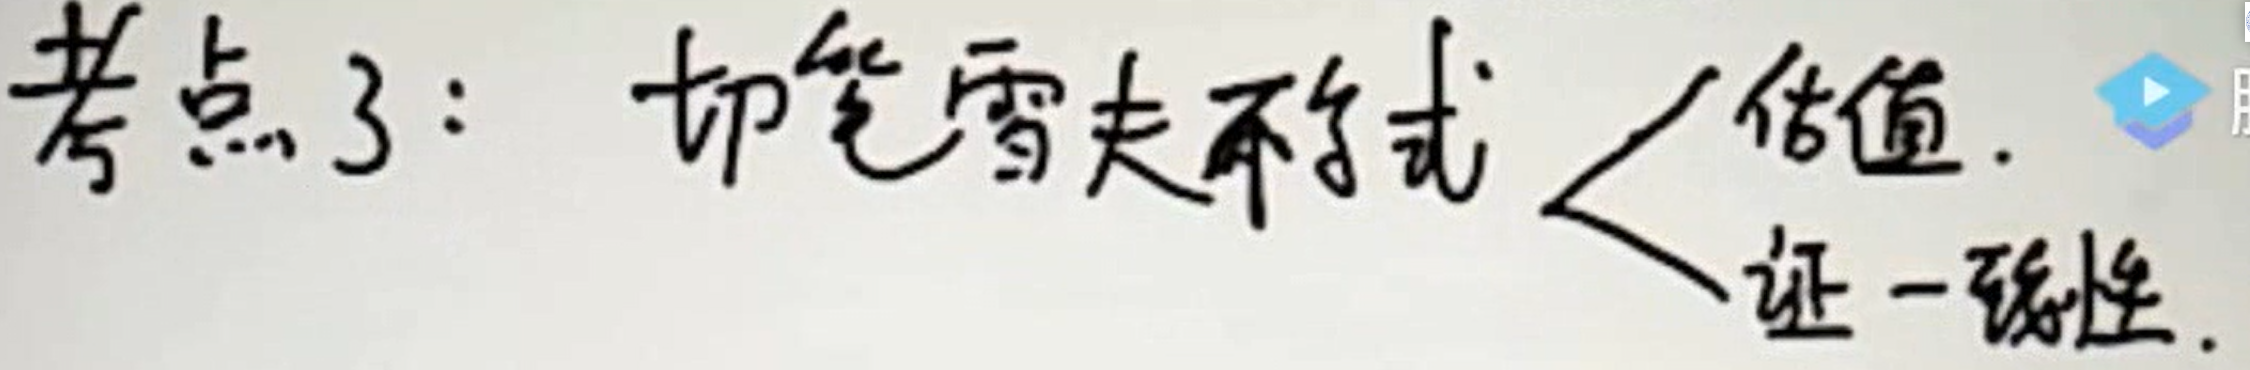 考点3: 切笔雪夫不等式 估值.
证一致性.